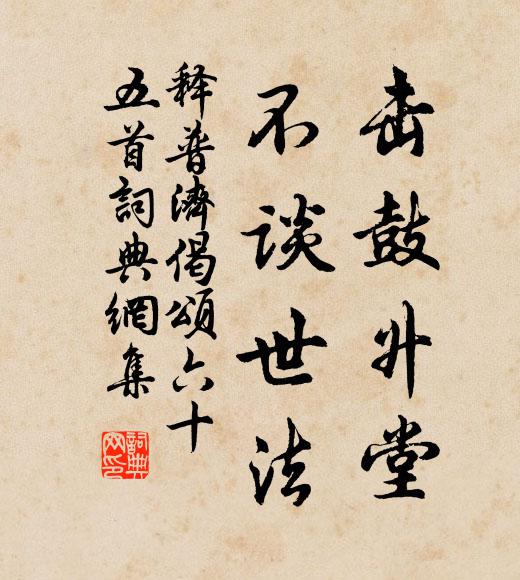 击鼓升堂
不谈世法
释普濟偈頌六十
五首詞典網集
詞典
网印